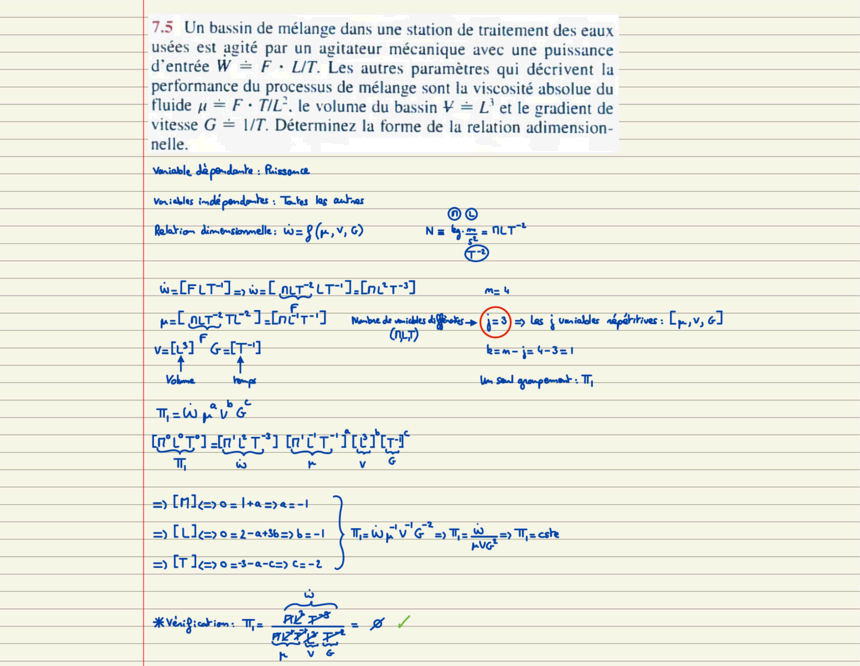 7.5 Un bassin de mélange dans une station de traitement des eaux
usées est agité par un agitateur mécanique avec une puissance
d'entrée Ẇ ≐ F · L/T. Les autres paramètres qui décrivent la
performance du processus de mélange sont la viscosité absolue du
fluide μ ≐ F · T/L², le volume du bassin V ≐ L³ et le gradient de
vitesse G ≐ 1/T. Déterminez la forme de la relation adimension-
nelle.
Variable dépendante : Puissance
Variables indépendantes : Toutes les autres
(M) (L)
Relation dimensionnelle : ẇ = f(μ, V, G) N ≡ kg·m/s² = MLT⁻²
(T⁻²)
ẇ = [FLT⁻¹] => ẇ = [MLT⁻² LT⁻¹] = [ML²T⁻³] m = 4
F
μ = [MLT⁻² TL⁻²] = [ML⁻¹T⁻¹] Nombre de variables différentes → j = 3 => Les j variables répétitives : [μ, V, G]
F (MLT)
V = [L³] G = [T⁻¹] k = m - j = 4 - 3 = 1
Volume temps Un seul groupement : π₁
π₁ = ẇ μᵃ Vᵇ Gᶜ
[M⁰L⁰T⁰] = [M¹L²T⁻³] [M¹L⁻¹T⁻¹]ᵃ [L³]ᵇ [T⁻¹]ᶜ
π₁ ẇ μ V G
=> [M] <=> 0 = 1 + a => a = -1
=> [L] <=> 0 = 2 - a + 3b => b = -1 π₁ = ẇ μ⁻¹ V⁻¹ G⁻² => π₁ = ẇ/μVG² => π₁ = cste
=> [T] <=> 0 = -3 - a - c => c = -2
ẇ
* Vérification : π₁ = ML²T⁻³/ML⁻¹T⁻¹L³T⁻² = ø ✓
μ V G